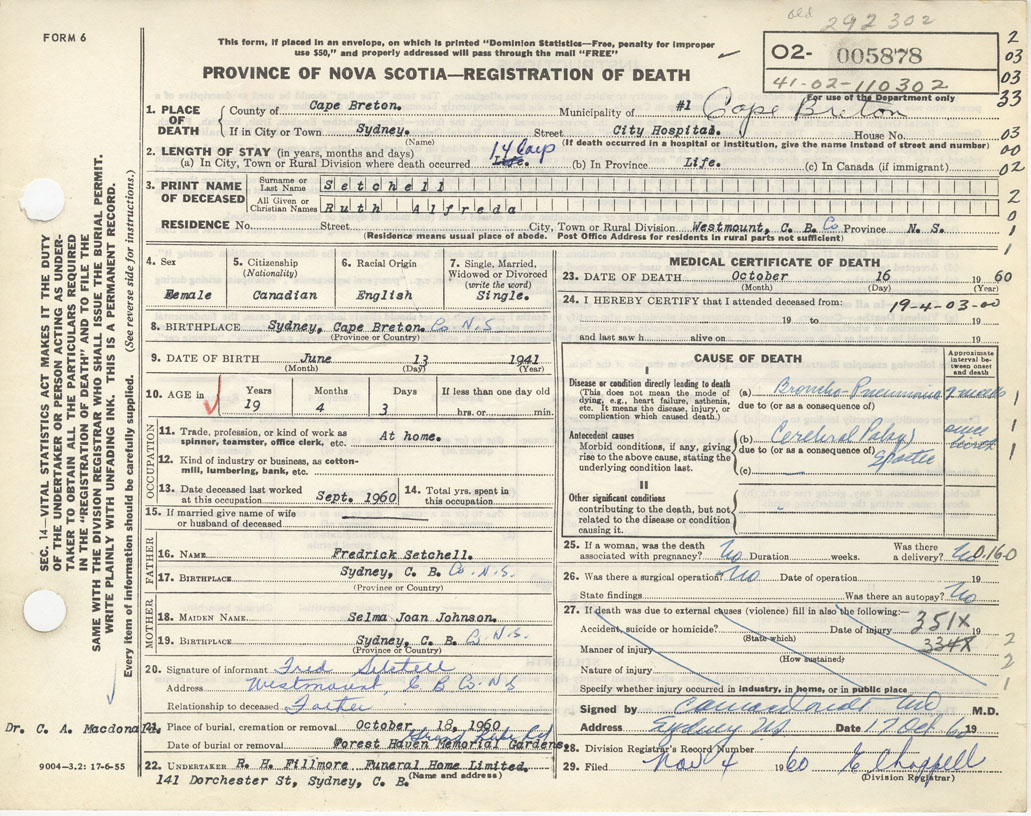 old 292302
FORM 6
This form, if placed in an envelope, on which is printed "Dominion Statistics—Free, penalty for improper
use $50," and properly addressed will pass through the mail "FREE"
PROVINCE OF NOVA SCOTIA—REGISTRATION OF DEATH
O2- 005878
41-02-110302
For use of the Department only
2
03
03
33
03
00
02
2
0
1
1
SEC. 14—VITAL STATISTICS ACT MAKES IT THE DUTY
OF THE UNDERTAKER OR PERSON ACTING AS UNDER-
TAKER TO OBTAIN ALL THE PARTICULARS REQUIRED
IN THE "REGISTRATION OF DEATH" AND TO FILE THE
SAME WITH THE DIVISION REGISTRAR WHO SHALL ISSUE THE BURIAL PERMIT.
WRITE PLAINLY WITH UNFADING INK. THIS IS A PERMANENT RECORD.
Every item of information should be carefully supplied. (See reverse side for instructions.)
1. PLACE OF DEATH
County of Cape Breton. Municipality of #1 Cape Breton
If in City or Town Sydney. Street City Hospital. House No.
(Name) (If death occurred in a hospital or institution, give the name instead of street and number)
2. LENGTH OF STAY (in years, months and days)
(a) In City, Town or Rural Division where death occurred Life. 14 Days (b) In Province Life. (c) In Canada (if immigrant)
3. PRINT NAME OF DECEASED
Surname or Last Name Setchell
All Given or Christian Names Ruth Alfreda
RESIDENCE No. Street City, Town or Rural Division Westmount, C. B. Co Province N. S.
(Residence means usual place of abode. Post Office Address for residents in rural parts not sufficient)
4. Sex
Female
5. Citizenship (Nationality)
Canadian
6. Racial Origin
English
7. Single, Married, Widowed or Divorced (write the word)
Single.
8. BIRTHPLACE Sydney, Cape Breton. Co. N.S
(Province or Country)
9. DATE OF BIRTH June 13 1941
(Month) (Day) (Year)
10. AGE in
Years 19
Months 4
Days 3
If less than one day old
hrs. or min.
OCCUPATION
11. Trade, profession, or kind of work as spinner, teamster, office clerk, etc. At home.
12. Kind of industry or business, as cotton-mill, lumbering, bank, etc.
13. Date deceased last worked at this occupation Sept. 1960
14. Total yrs. spent in this occupation
15. If married give name of wife or husband of deceased
FATHER
16. NAME Fredrick Setchell.
17. BIRTHPLACE Sydney, C. B. Co. N.S.
(Province or Country)
MOTHER
18. MAIDEN NAME Selma Joan Johnson.
19. BIRTHPLACE Sydney, C. B. Co. N.S.
(Province or Country)
20. Signature of informant Fred Setchell
Address Westmount, C B Co. N S
Relationship to deceased Father
Dr. C. A. Macdonald.
21. Place of burial, cremation or removal October 18, 1960
Date of burial or removal Forest Haven Memorial Gardens.
22. UNDERTAKER R. H. Fillmore Funeral Home Limited.
(Name and address)
141 Dorchester St, Sydney, C. B.
9004—3.2: 17-6-55
MEDICAL CERTIFICATE OF DEATH
23. DATE OF DEATH October 16 1960
(Month) (Day) (Year)
24. I HEREBY CERTIFY that I attended deceased from:
19-4-03-00
19 to 19
and last saw h alive on 19
CAUSE OF DEATH
Approximate interval between onset and death
I
Disease or condition directly leading to death
(This does not mean the mode of dying, e.g., heart failure, asthenia, etc. It means the disease, injury, or complication which caused death.)
(a) Broncho-Pneumonia 2 weeks 1
due to (or as a consequence of)
Antecedent causes
Morbid conditions, if any, giving rise to the above cause, stating the underlying condition last.
(b) Cerebral Palsy since birth 1
due to (or as a consequence of) Spastic 1
(c)
II
Other significant conditions
contributing to the death, but not related to the disease or condition causing it.
25. If a woman, was the death associated with pregnancy? No Duration weeks. Was there a delivery? No 0.16.0
26. Was there a surgical operation? No Date of operation 19
State findings Was there an autopsy? No
27. If death was due to external causes (violence) fill in also the following:—
Accident, suicide or homicide? Date of injury 351X 19 2
(State which)
Manner of injury 334X 2
(How sustained)
Nature of injury 1
Specify whether injury occurred in industry, in home, or in public place
Signed by M.D.
Address Sydney NS Date 17 Oct 60 19
28. Division Registrar's Record Number
29. Filed Nov 4 1960 E Chappell
(Division Registrar)